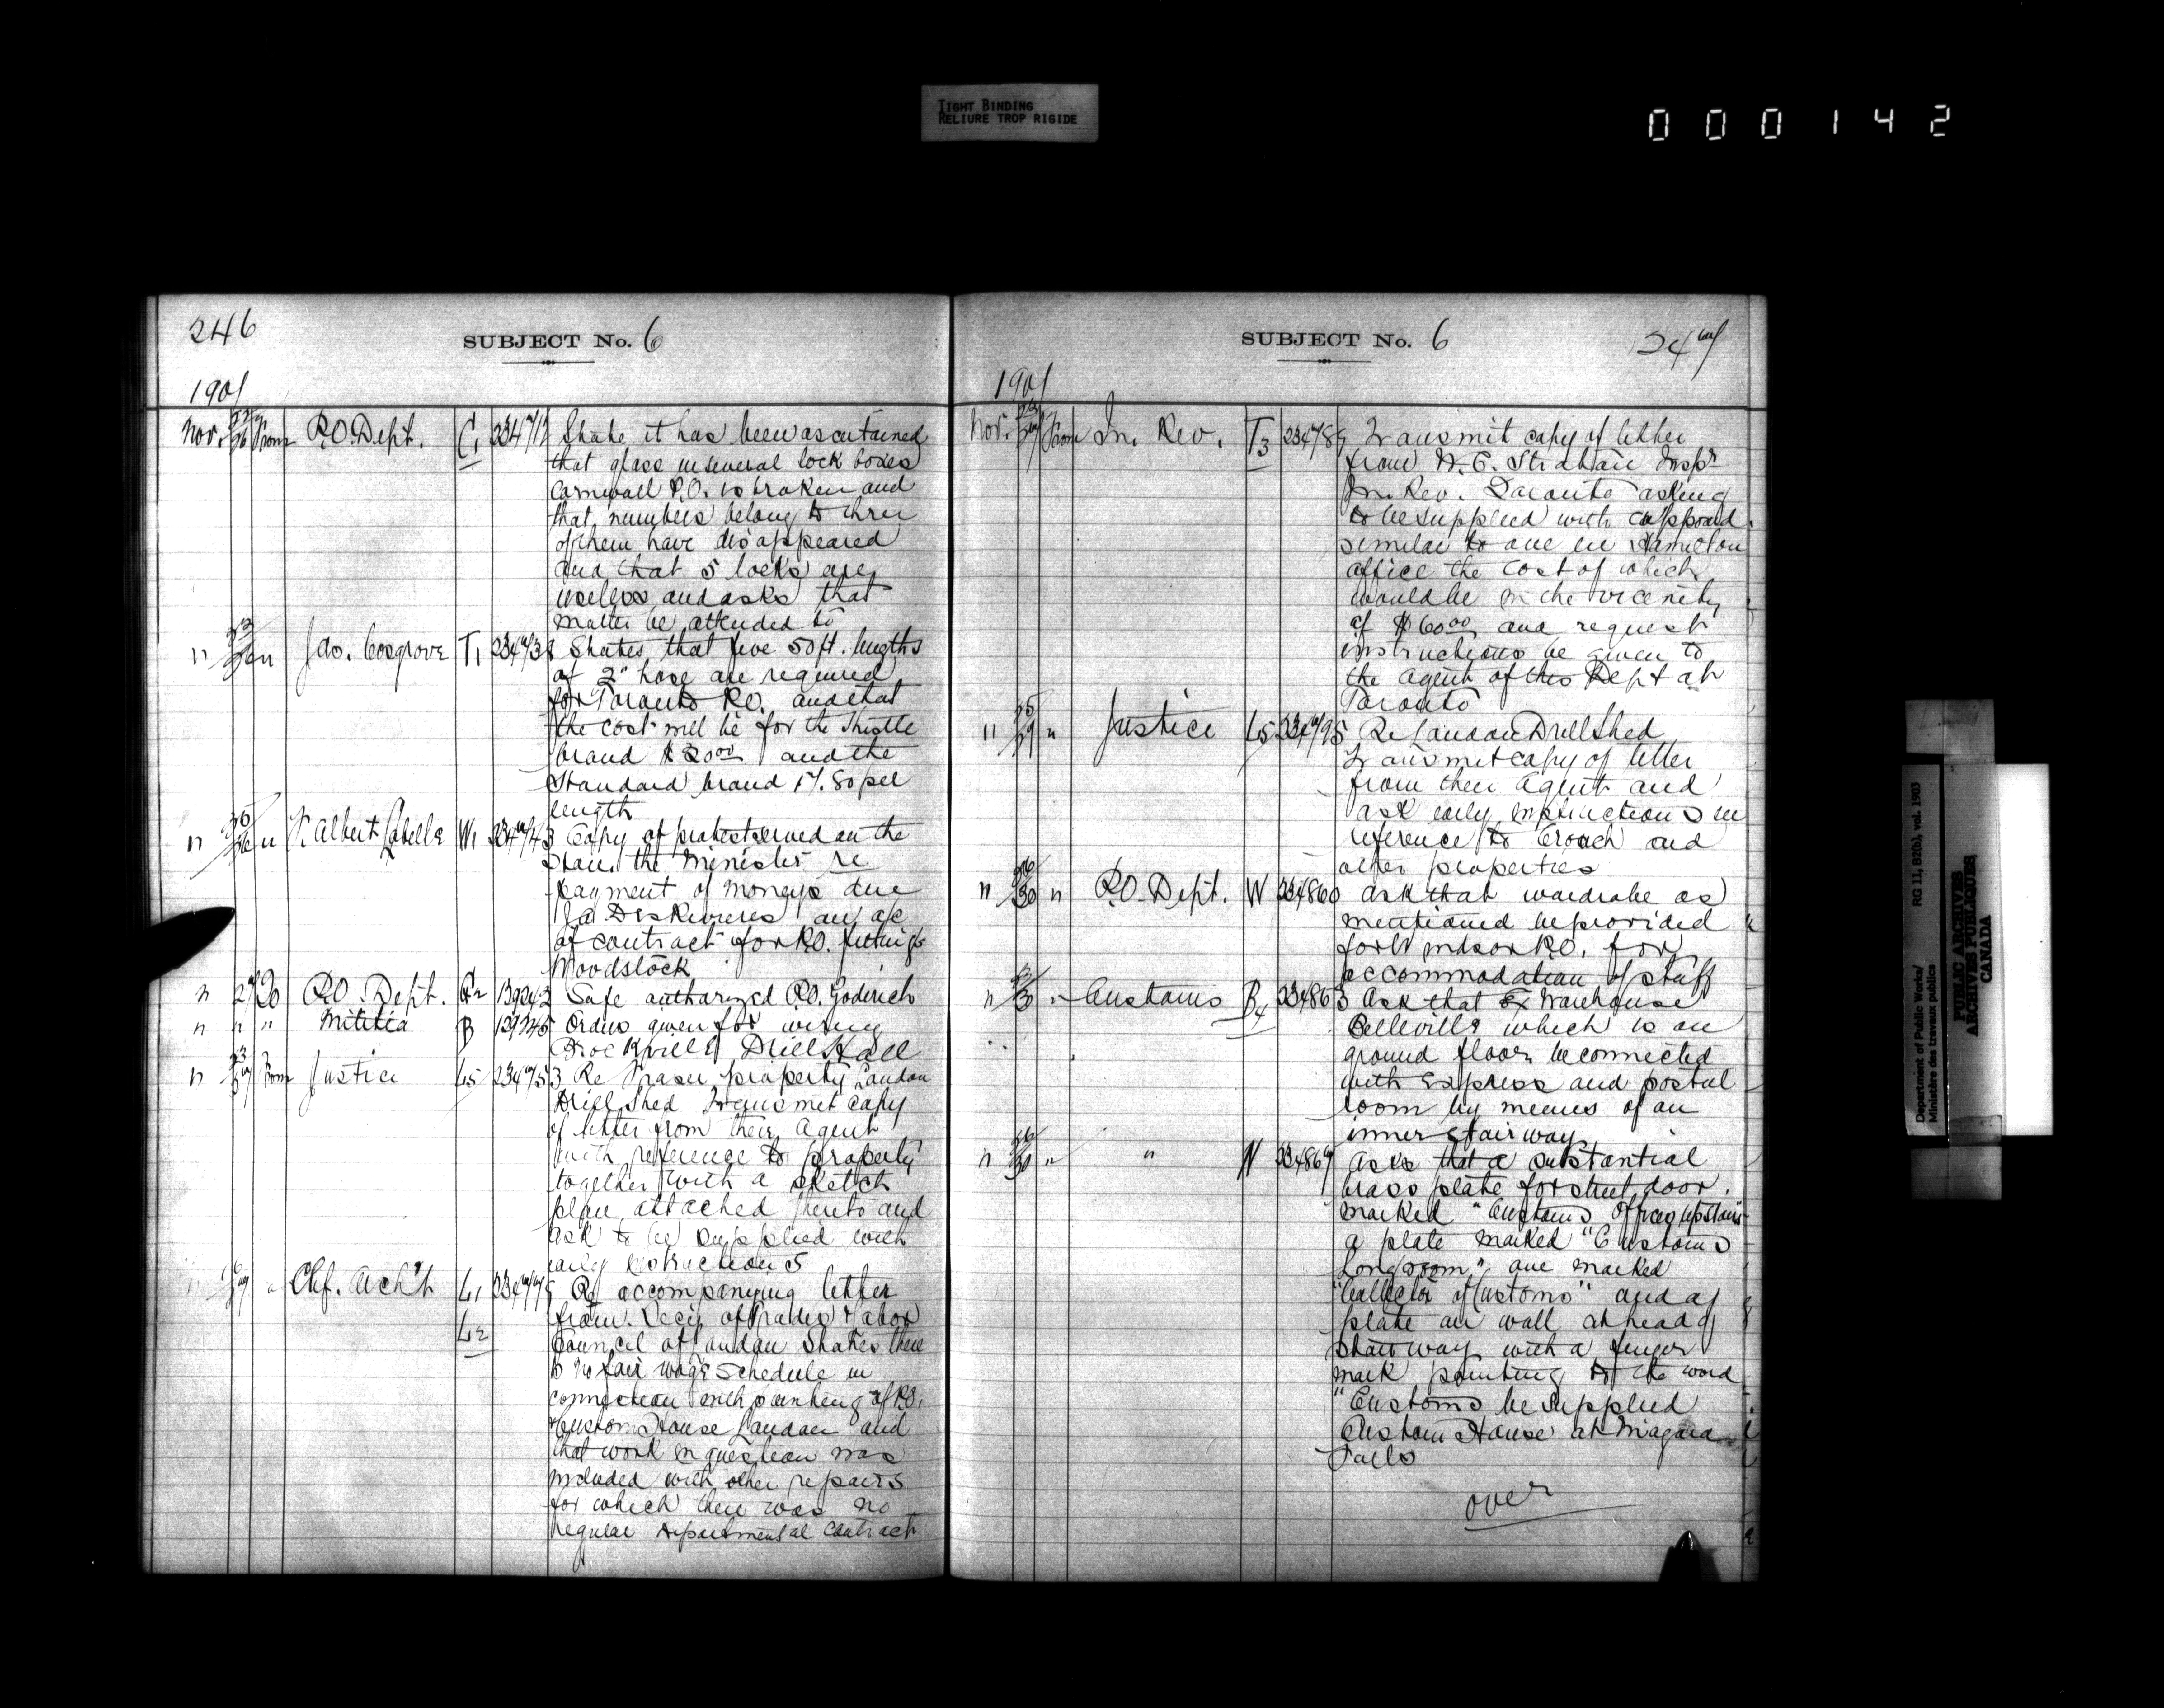 TIGHT BINDING
RELIURE TROP RIGIDE
000142
246
SUBJECT No. 6
1901
Nov. 22/26 From P.O. Dept. C1 234712 State it has been ascertained
that glass in several lock boxes
Cornwall P.O. is broken and
that numbers belong to three
of them have disappeared
and that 5 locks are
useless and asks that
matter be attended to
" 23/26 " Jas. Cosgrove T1 234738 States that five 50 ft. lengths
of 2" hose are required
for Toronto P.O. and that
the cost will be for the Thistle
brand $20.00 and the
Standard brand 17.50 per
length
" 25/26 " Albert W1 234743 Copy of protest served on the
Hon. the Minister re
payment of moneys due
on a/c
of contract for P.O. fittings
Woodstock
" 27 To P.O. Dept. G2 139242 Safe authorized P.O. Goderich
" " " Militia B 139245 Orders given for wiring
Brockville Drill Hall
" 23/27 From Justice L5 234753 Re Fraser property London
Drill Shed Transmit copy
of letter from their Agent
with reference to property
together with a sketch
plan attached thereto and
ask to be supplied with
early instructions
" " Chf. Arch't L1 234775 Re accompanying letter
L2 from Secy of Trades & Labor
Council of London States there
is no fair wage schedule in
connection with painting of P.O.
& Custom House London and
that work in question was
included with other repairs
for which there was no
regular departmental contract
SUBJECT No. 6
247
1901
Nov. From In. Rev. T3 234789 Transmit copy of letter
from Inspr
In. Rev. Toronto asking
to be supplied with cupboard
similar to one in Hamilton
office the cost of which
would be in the vicinity
of $60.00 and request
instructions be given to
the Agent of this Dept at
Toronto
" 25/29 " Justice L5 234795 Re London Drill Shed
Transmit copy of letter
from their Agent and
ask early instructions in
reference to Crouch and
other properties
" 26/30 " P.O. Dept. W 234860 Ask that wardrobe as
mentioned be provided
for Windsor P.O. for
accommodation of staff
" " Customs B4 234863 Ask that Ex Warehouse
Belleville which is on
ground floor be connected
with Express and postal
room by means of an
inner stairway
" 26/30 " " N 234869 Asks that a substantial
brass plate for street door
marked "Customs Offices upstairs"
a plate marked "Customs
Longroom", one marked
"Collector of Customs" and a
plate on wall at head of
stairway with a finger
mark pointing to the word
"Customs be supplied
Custom House at Niagara
Falls
over
Department of Public Works/ RG 11, B2(b), vol. 1903
Ministère des travaux publics
PUBLIC ARCHIVES
ARCHIVES PUBLIQUES
CANADA